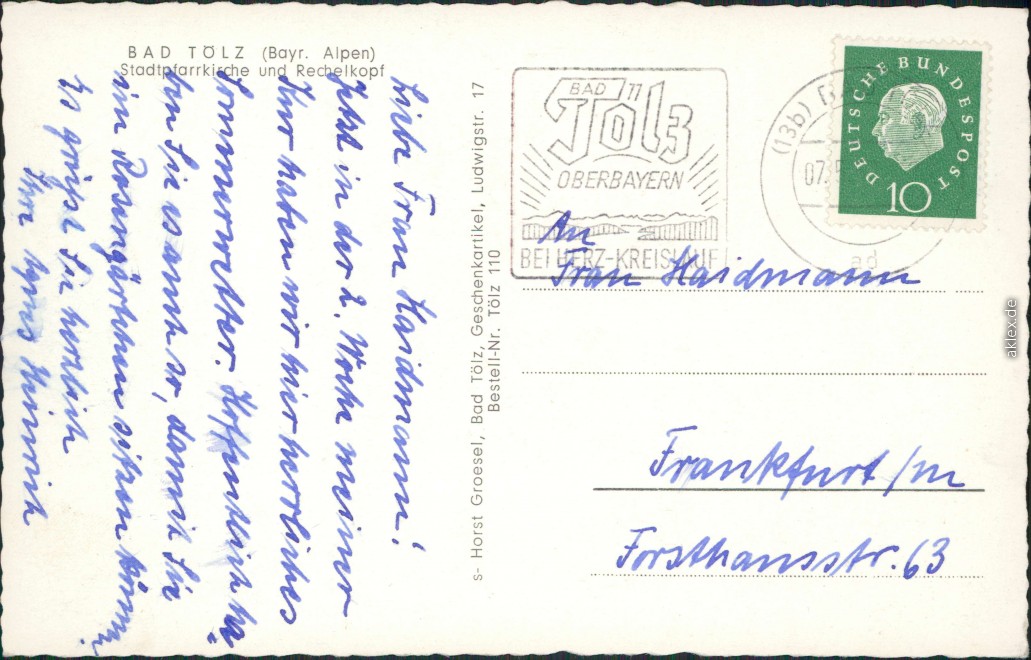 BAD TÖLZ (Bayr. Alpen)
Stadtpfarrkirche und Rechelkopf
Liebe Frau Haidmann!
Jetzt in der 2. Woche meiner
Kur haben wir hier herrliches
Sommerwetter. Hoffentlich ha-
ben Sie es auch so, damit Sie
im Rosengärtchen sitzen können.
Es grüßt Sie herzlich
Ihre Heinrich
s- Horst Groesel, Bad Tölz, Geschenkartikel, Ludwigstr. 17
Bestell-Nr. Tölz 110
BAD
Tölz
OBERBAYERN
BEI HERZ-KREISLAUF
(13b)
07.
ad
DEUTSCHE BUNDESPOST
10
An
Frau Haidmann
Frankfurt/M
Forsthausstr. 63
aklex.de